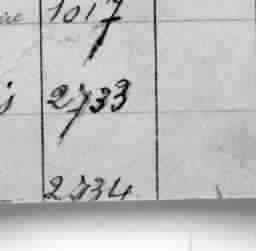 1017
2733
2734